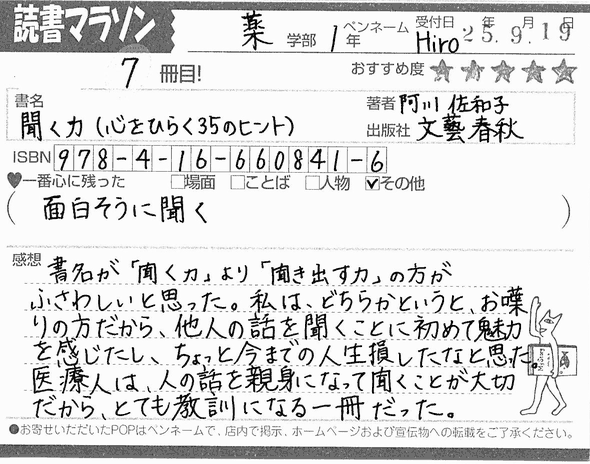 読書マラソン
薬 学部 1年
ペンネーム Hiro
受付日 25.9.19 年 月 日
7 冊目!
おすすめ度 ★★★★★
書名
聞く力(心をひらく35のヒント)
著者 阿川 佐和子
出版社 文藝春秋
ISBN 978-4-16-660841-6
♥一番心に残った □場面 □ことば □人物 ☑その他
(面白そうに聞く)
感想 書名が「聞く力」より「聞き出す力」の方が
ふさわしいと思った。私は、どちらかというと、お喋
りの方だから、他人の話を聞くことに初めて魅力
を感じたし、ちょっと今までの人生損したなと思った。
医療人は、人の話を親身になって聞くことが大切
だから、とても教訓になる一冊だった。
●お寄せいただいたPOPはペンネームで、店内で掲示、ホームページおよび宣伝物への転載をご了承ください。